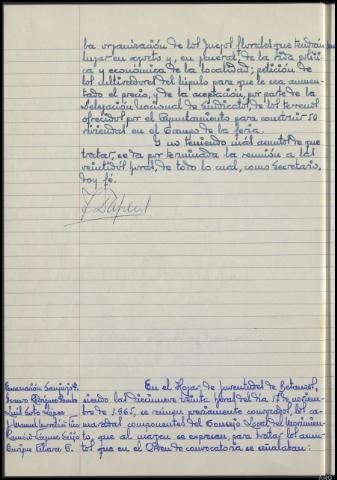 la organización de los Juegos florales que tendrán
lugar en agosto y, en general, de la vida políti-
ca y económica de la localidad; petición de
los cultivadores del lúpulo para que le sea aumen-
tado el precio, y de la aceptación, por parte de la
Delegación Nacional de Sindicatos, de los terrenos
ofrecidos por el Ayuntamiento para construir 50
viviendas en el Campo de la feria.
Y no teniendo más asuntos de que
tratar, se da por terminada la reunión a las
veintidós horas, de todo lo cual, como Secretario,
doy fé.
En el Hogar de Juventudes de Betanzos,
siendo las diecinueve treinta horas del día 17 de noviem-
bre de 1965, se reúnen previamente convocados, los ca-
maradas componentes del Consejo Local del Movimien-
to, que al margen se expresan, para tratar los asun-
tos que en el Orden de convocatoria se señalaban:
Encarnación
Luis Soto López
Manuel
Ramón
Enrique